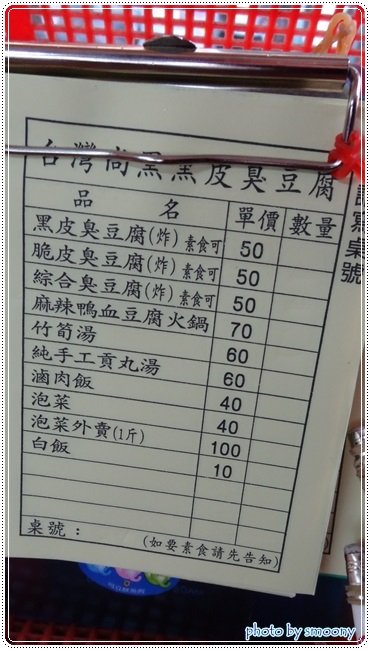 台灣尚黑黑皮臭豆腐
品名 單價 數量
黑皮臭豆腐(炸) 素食可 50
脆皮臭豆腐(炸) 素食可 50
綜合臭豆腐(炸) 素食可 50
麻辣鴨血豆腐火鍋 70
竹筍湯 60
純手工貢丸湯 60
滷肉飯 40
泡菜 40
泡菜外賣(1斤) 100
白飯 10
桌號：
(如要素食請先告知)
桌號
photo by smoony